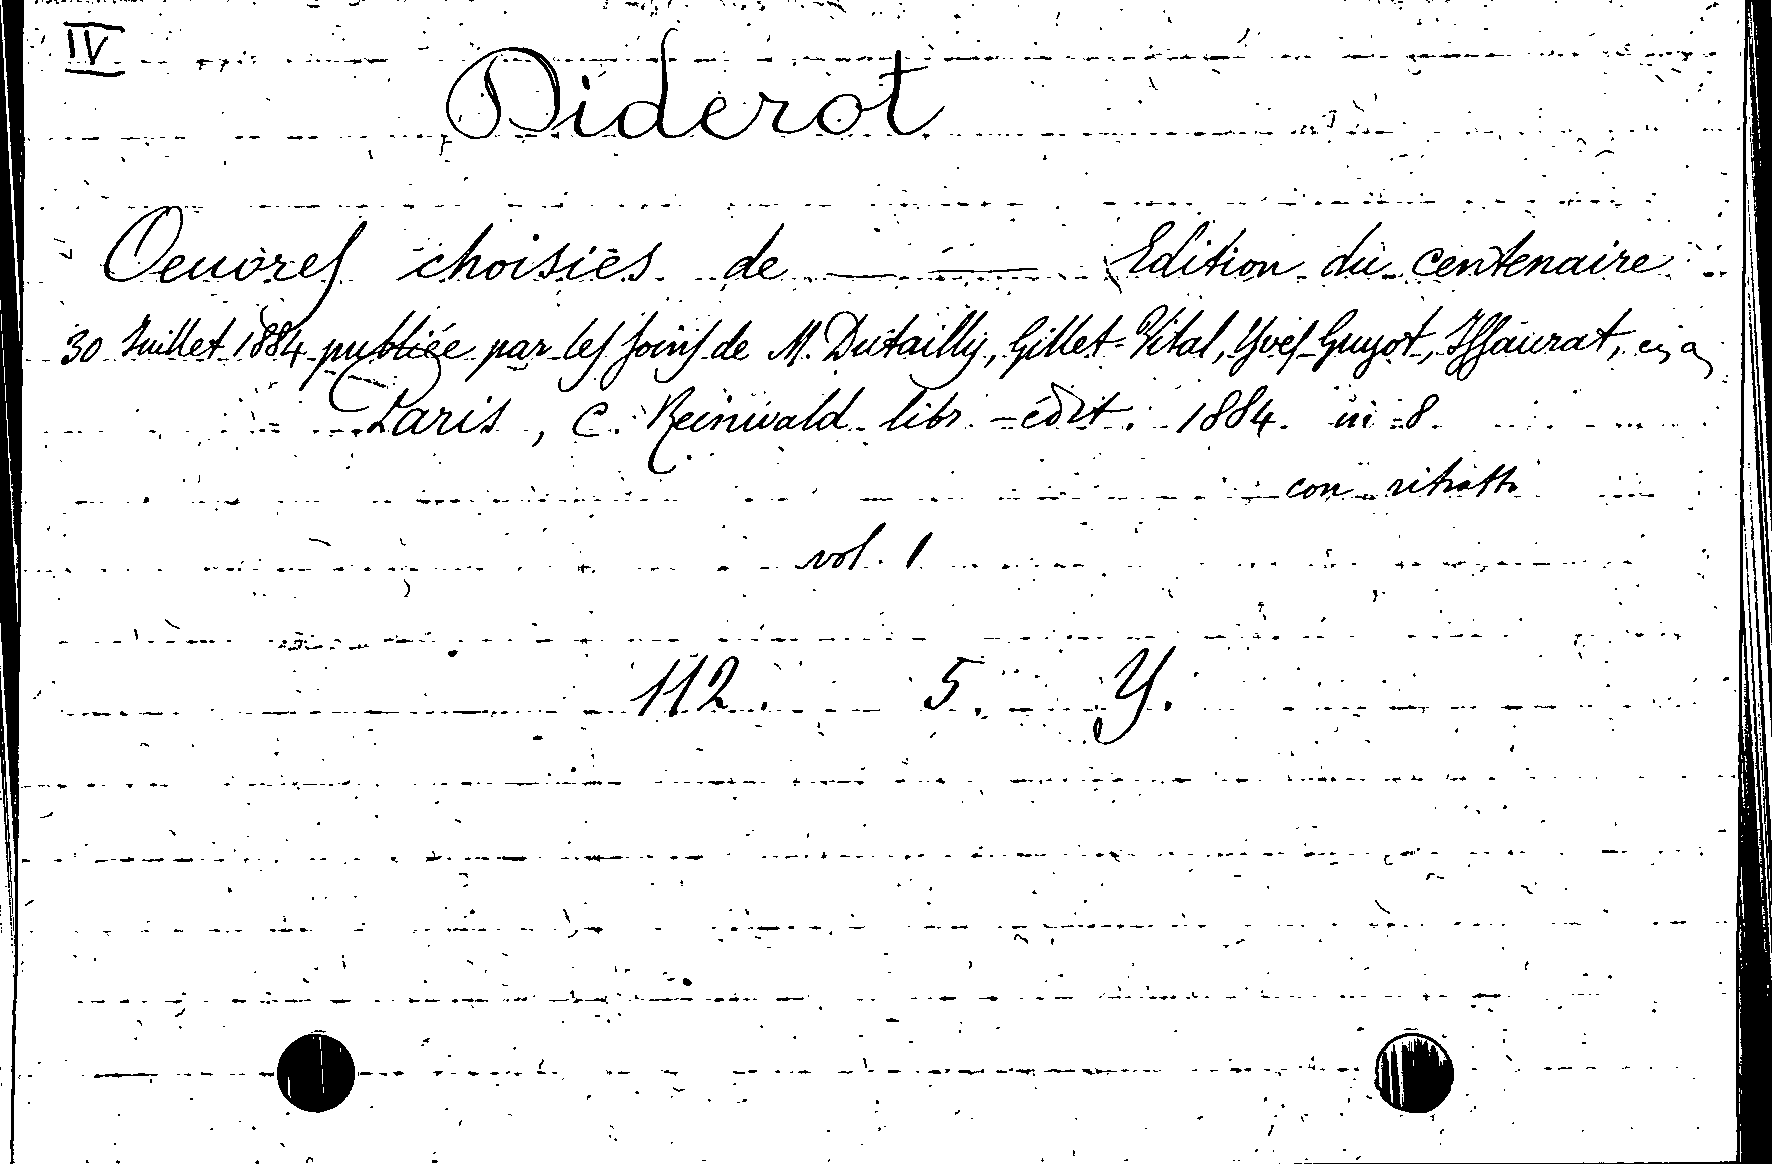 IV
Diderot
Oeuvres choisies de — — Edition du centenaire
30 Juillet 1884 publiée par les soins de M. Dutailly, Gillet-Vital, Yves-Guyot, Issaurat,
Paris, C. Reinwald libr.-édit. 1884. in-8.
con ritratto
vol. 1
112. 5. Y.